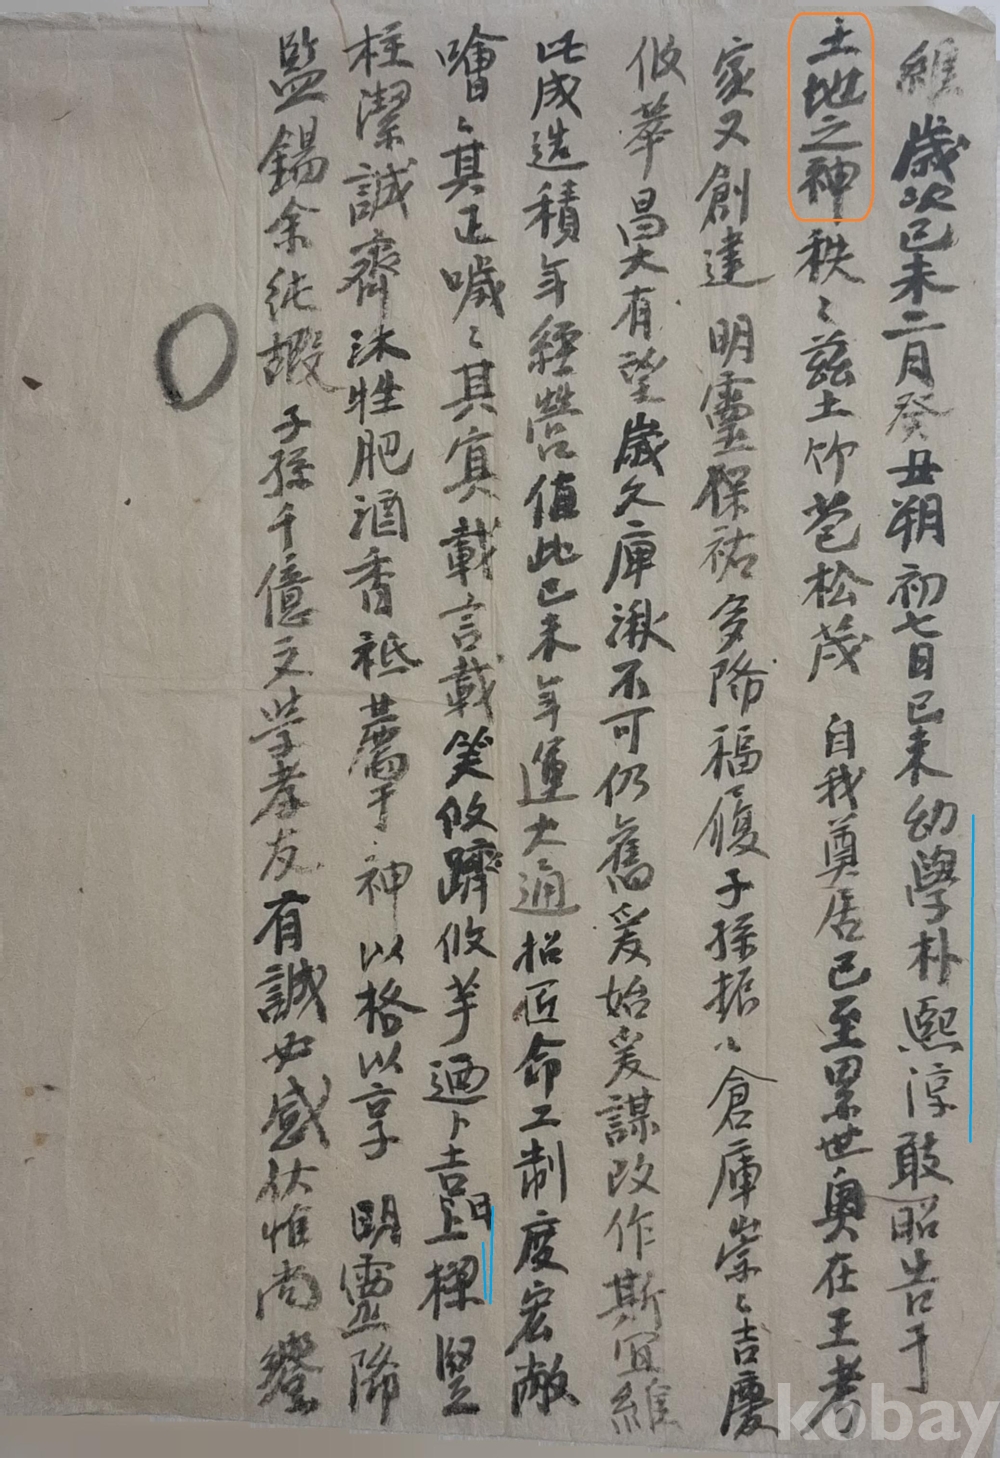 維 歲次己未二月癸丑朔初七日己未幼學朴熙淳敢昭告于
土地之神秩〻玆土竹苞松茂 自我奠居已至累世奧在王考
家又創建 明靈保祐多降福履子孫振〻倉庫崇〻吉慶
攸萃昌大有望歲久庫湫不可仍舊爰始爰謀改作斯宜維
此成造積年經營値此己未年運大通招匠命工制度宏敞
噲〻其正噦〻其冥載言載笑攸躋攸芋迺卜吉日上樑竪
柱潔誠齊沐牲肥酒香祗薦于神以格以享 明靈降
監錫余純嘏子孫千億文學孝友有誠必感伏惟尚饗
kobay